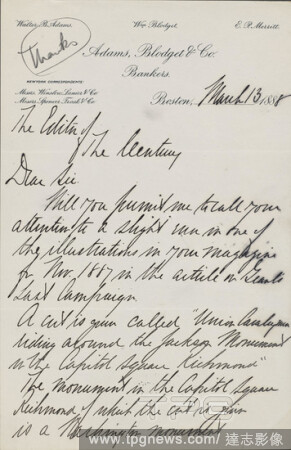 Walter B. Adams. Wm Blodget. E. P. Merritt.
Thanks
Adams, Blodget & Co.
Bankers.
NEW YORK CORRESPONDENTS
Messrs. Winslow, Lanier & Co
Messrs. Spencer Trask & Co.
Boston, March 13 1888
The Editor of
The Century
Dear Sir
Will you permit me to call your
attention to a slight error in one of
the illustrations in your magazine
for Nov. 1887 in the article on Grant's
Last Campaign
A cut is given called "Union Cavalrymen
riding around the Jackson Monument
in the Capitol Square Richmond"
The Monument in the Capitol Square
Richmond of which the cut is given
is a Washington monument
www.tpgnews.com / 達志影像